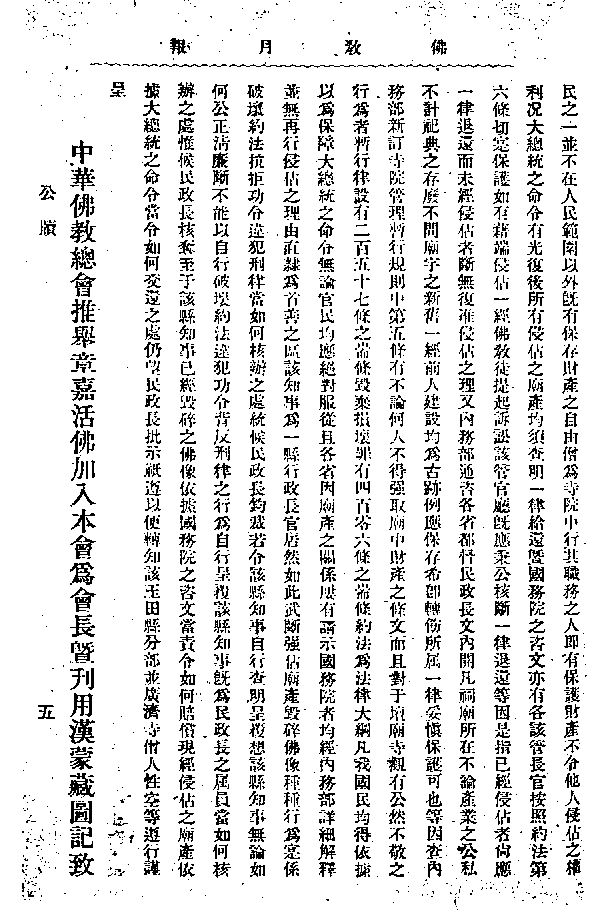 佛教月報
民之一並不在人民範圍以外旣有保存財產之自由僧爲寺院中行其職務之人即有保護財產不令他人侵佔之權
利况大總統之命令有光復後所有侵佔之廟產均須查明一律給還曁國務院之咨文亦有各該管長官按照約法第
六條切寔保護如有藉端侵佔一經佛敎徒提起訴訟該管官廳旣應秉公核斷一律退還等因是指已經侵佔者尙應
一律退還而未經侵佔者斷無復准侵佔之理又內務部通咨各省都督民政長文內開凡祠廟所在不論產業之公私
不計祀典之存廢不問廟宇之新舊一經前人建設均爲古跡例應保存希卽轉飭所屬一律妥愼保護可也等因查內
務部新訂寺院管理暫行規則中第五條有不論何人不得强取廟中財產之條文而且對于壇廟寺觀有公然不敬之
行爲者暫行律設有二百五十七條之耑條毀棄損壞罪有四百零六條之耑條約法爲法律大綱凡我國民均得依據
以爲保障大總統之命令無論官民均應絕對服從且各省因廟產之關係屢有請示國務院者均經內務部詳細解釋
並無再行侵佔之理由直隸爲首善之區該知事爲一縣行政長官居然如此武斷强佔廟產毀碎佛像種種行爲寔係
破壞約法抗拒功令違犯刑律當如何核辦之處統候民政長鈞裁若令該縣知事自行查明呈複想該縣知事無論如
何公正淸廉斷不能以自行破壞約法違犯功令背反刑律之行爲自行呈複該縣知事旣爲民政長之属員當如何核
辦之處惟候民政長核奪至于該縣知事已經毀碎之佛像依據國務院之咨文當責令如何賠償現經侵佔之廟產依
據大總統之命令當令如何交還之處仍望民政長批示祇遵以便轉知該玉田縣分部並廣濟寺僧人性空等遵行謹
呈
中華佛敎總會推舉章嘉活佛加入本會爲會長曁刊用漢蒙藏圖記致
公牘
五